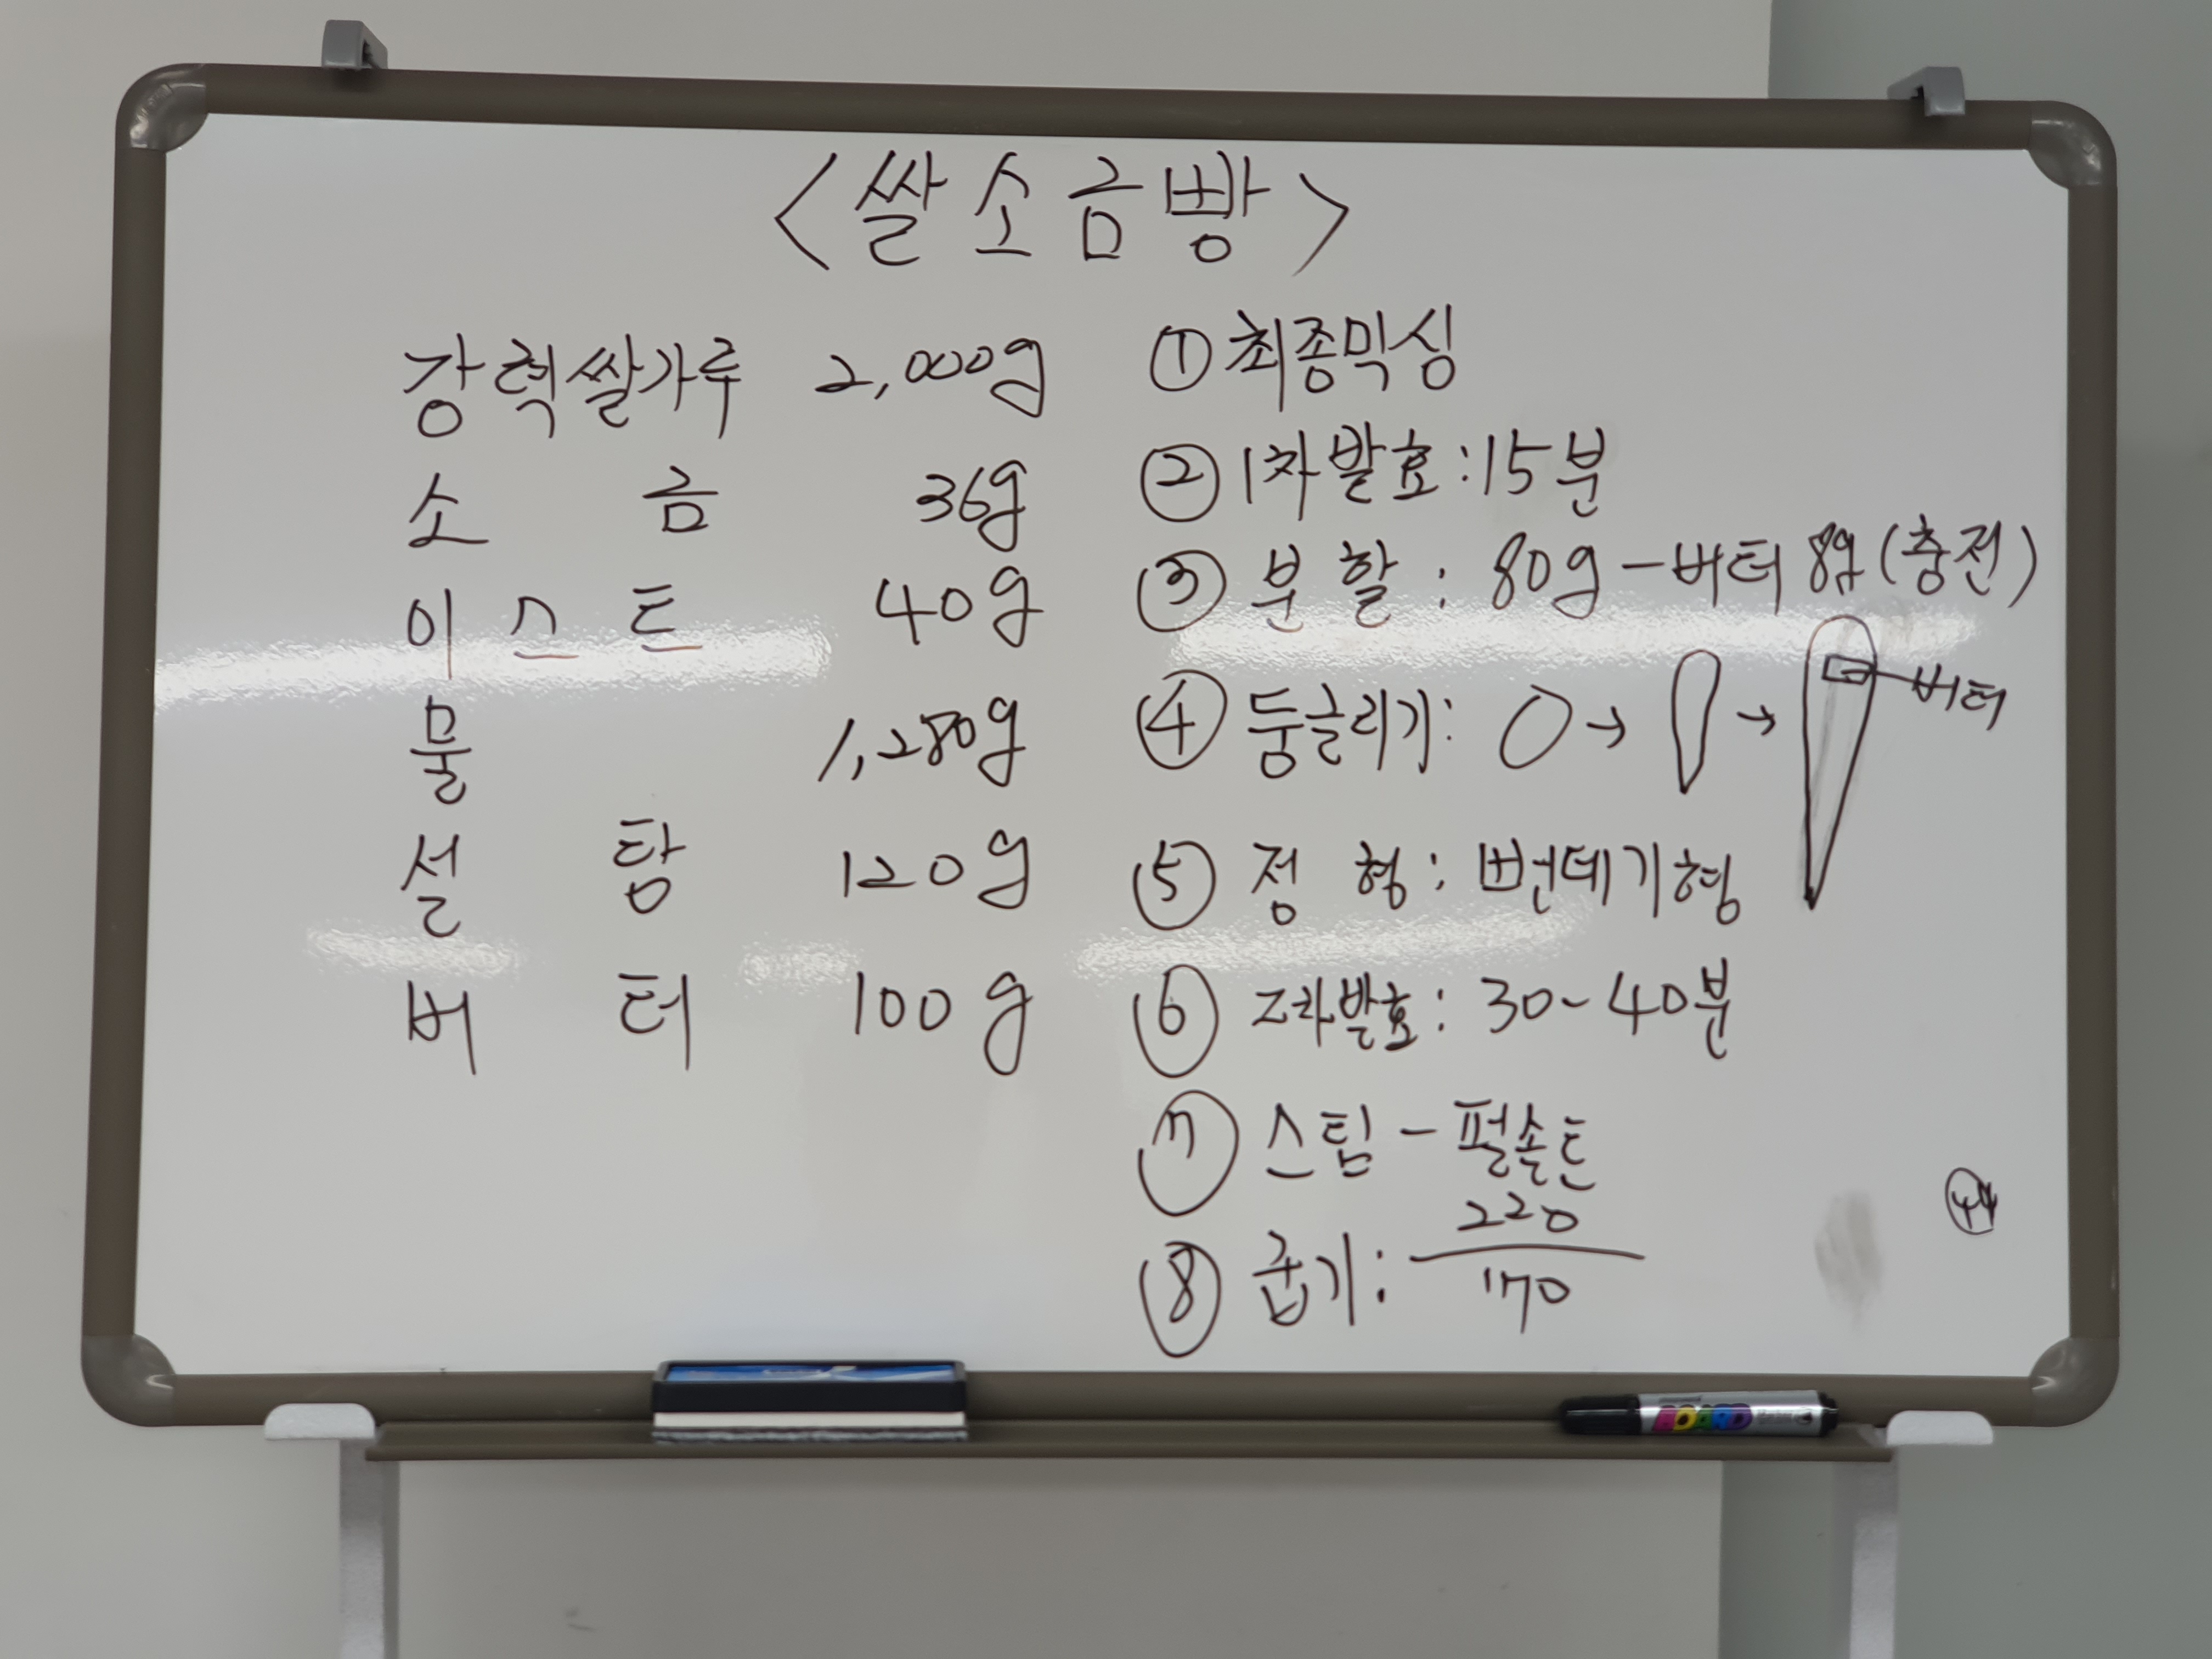 <쌀소금빵>
강력쌀가루 2,000g
소금 36g
이스트 40g
물 1,280g
설탕 120g
버터 100g
① 최종믹싱
② 1차발효: 15분
③ 분할: 80g - 버터 8g (충전)
④ 둥글리기: → →
버터
⑤ 정형: 번데기형
⑥ 2차발효: 30~40분
⑦ 스팀 - 펄솔트
⑧ 굽기: 220
170
BOARD